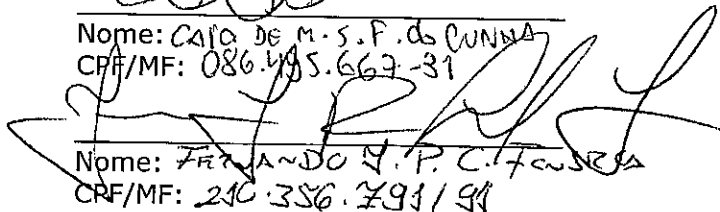 Nome: CAIO DE M. S. F. da CUNHA
CPF/MF: 086.495.667-31
Nome: FERNANDO J. P. C. FONSECA
CPF/MF: 210.356.791/91